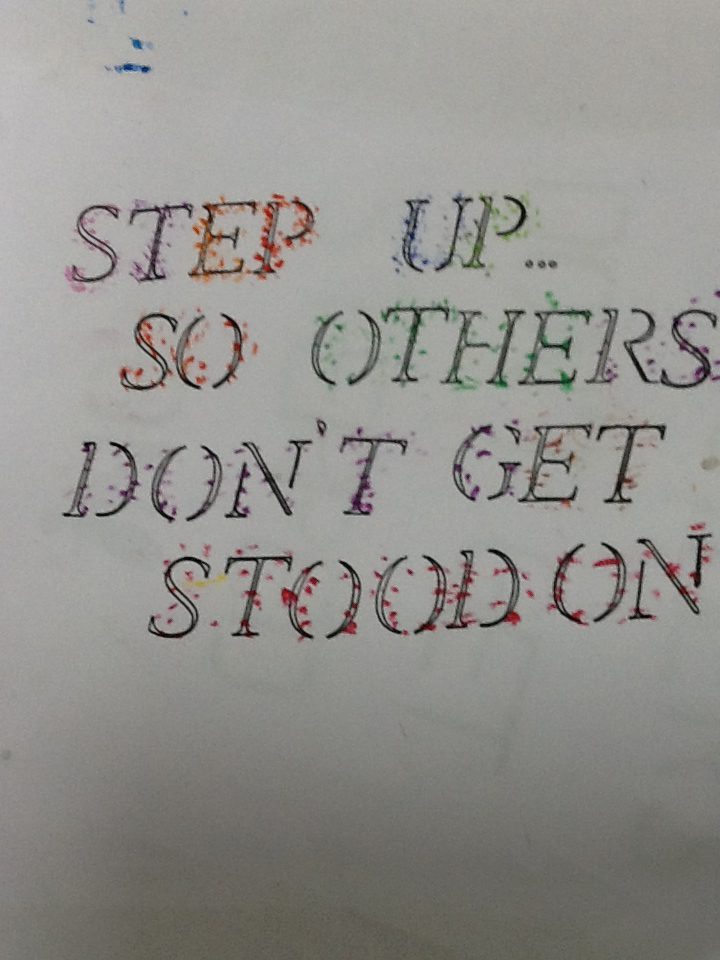 STEP UP...
SO OTHERS
DON'T GET
STOOD ON